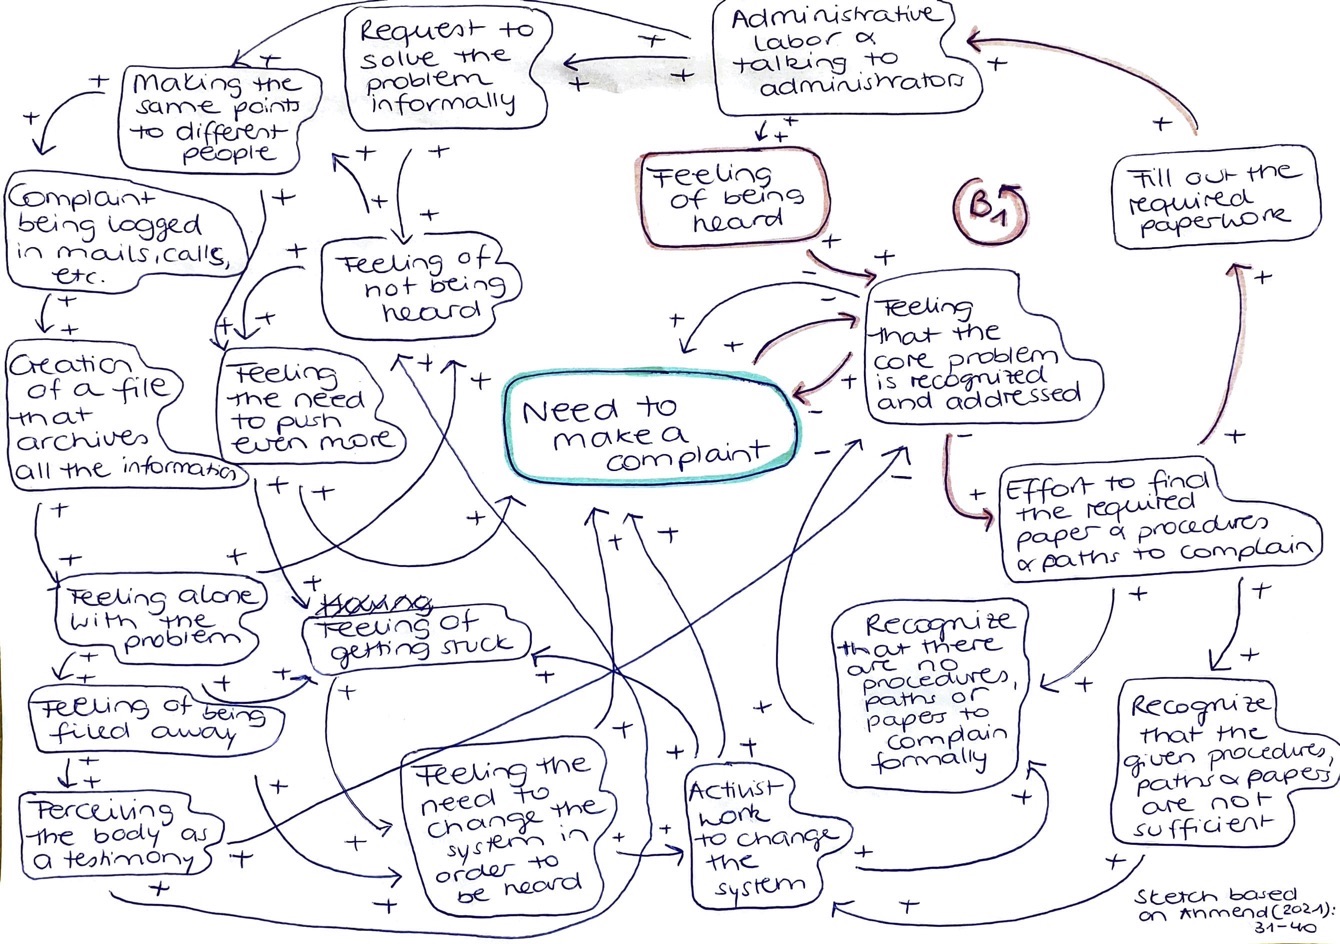 Request to
solve the
problem
informally
Administrative
labor &
talking to
administrators
Making the
same points
to different
people
Complaint
being logged
in mails, calls,
etc.
Feeling of
not being
heard
Feeling
of being
heard
B1
Fill out the
required
paperwork
Creation
of a file
that
archives
all the information
Feeling
the need
to push
even more
Need to
make a
complaint
Feeling
that the
core problem
is recognized
and addressed
Effort to find
the required
paper & procedures
& paths to complain
Feeling alone
with the
problem
Feeling of
getting stuck
Recognize
that there
are no
procedures,
paths or
papers to
complain
formally
Recognize
that the
given procedures,
paths & papers
are not
sufficient
Feeling of being
filed away
Perceiving
the body as
a testimony
Feeling the
need to
change the
system in
order to
be heard
Activist
work
to change
the
system
Sketch based
on Ahmend (2021):
31-40